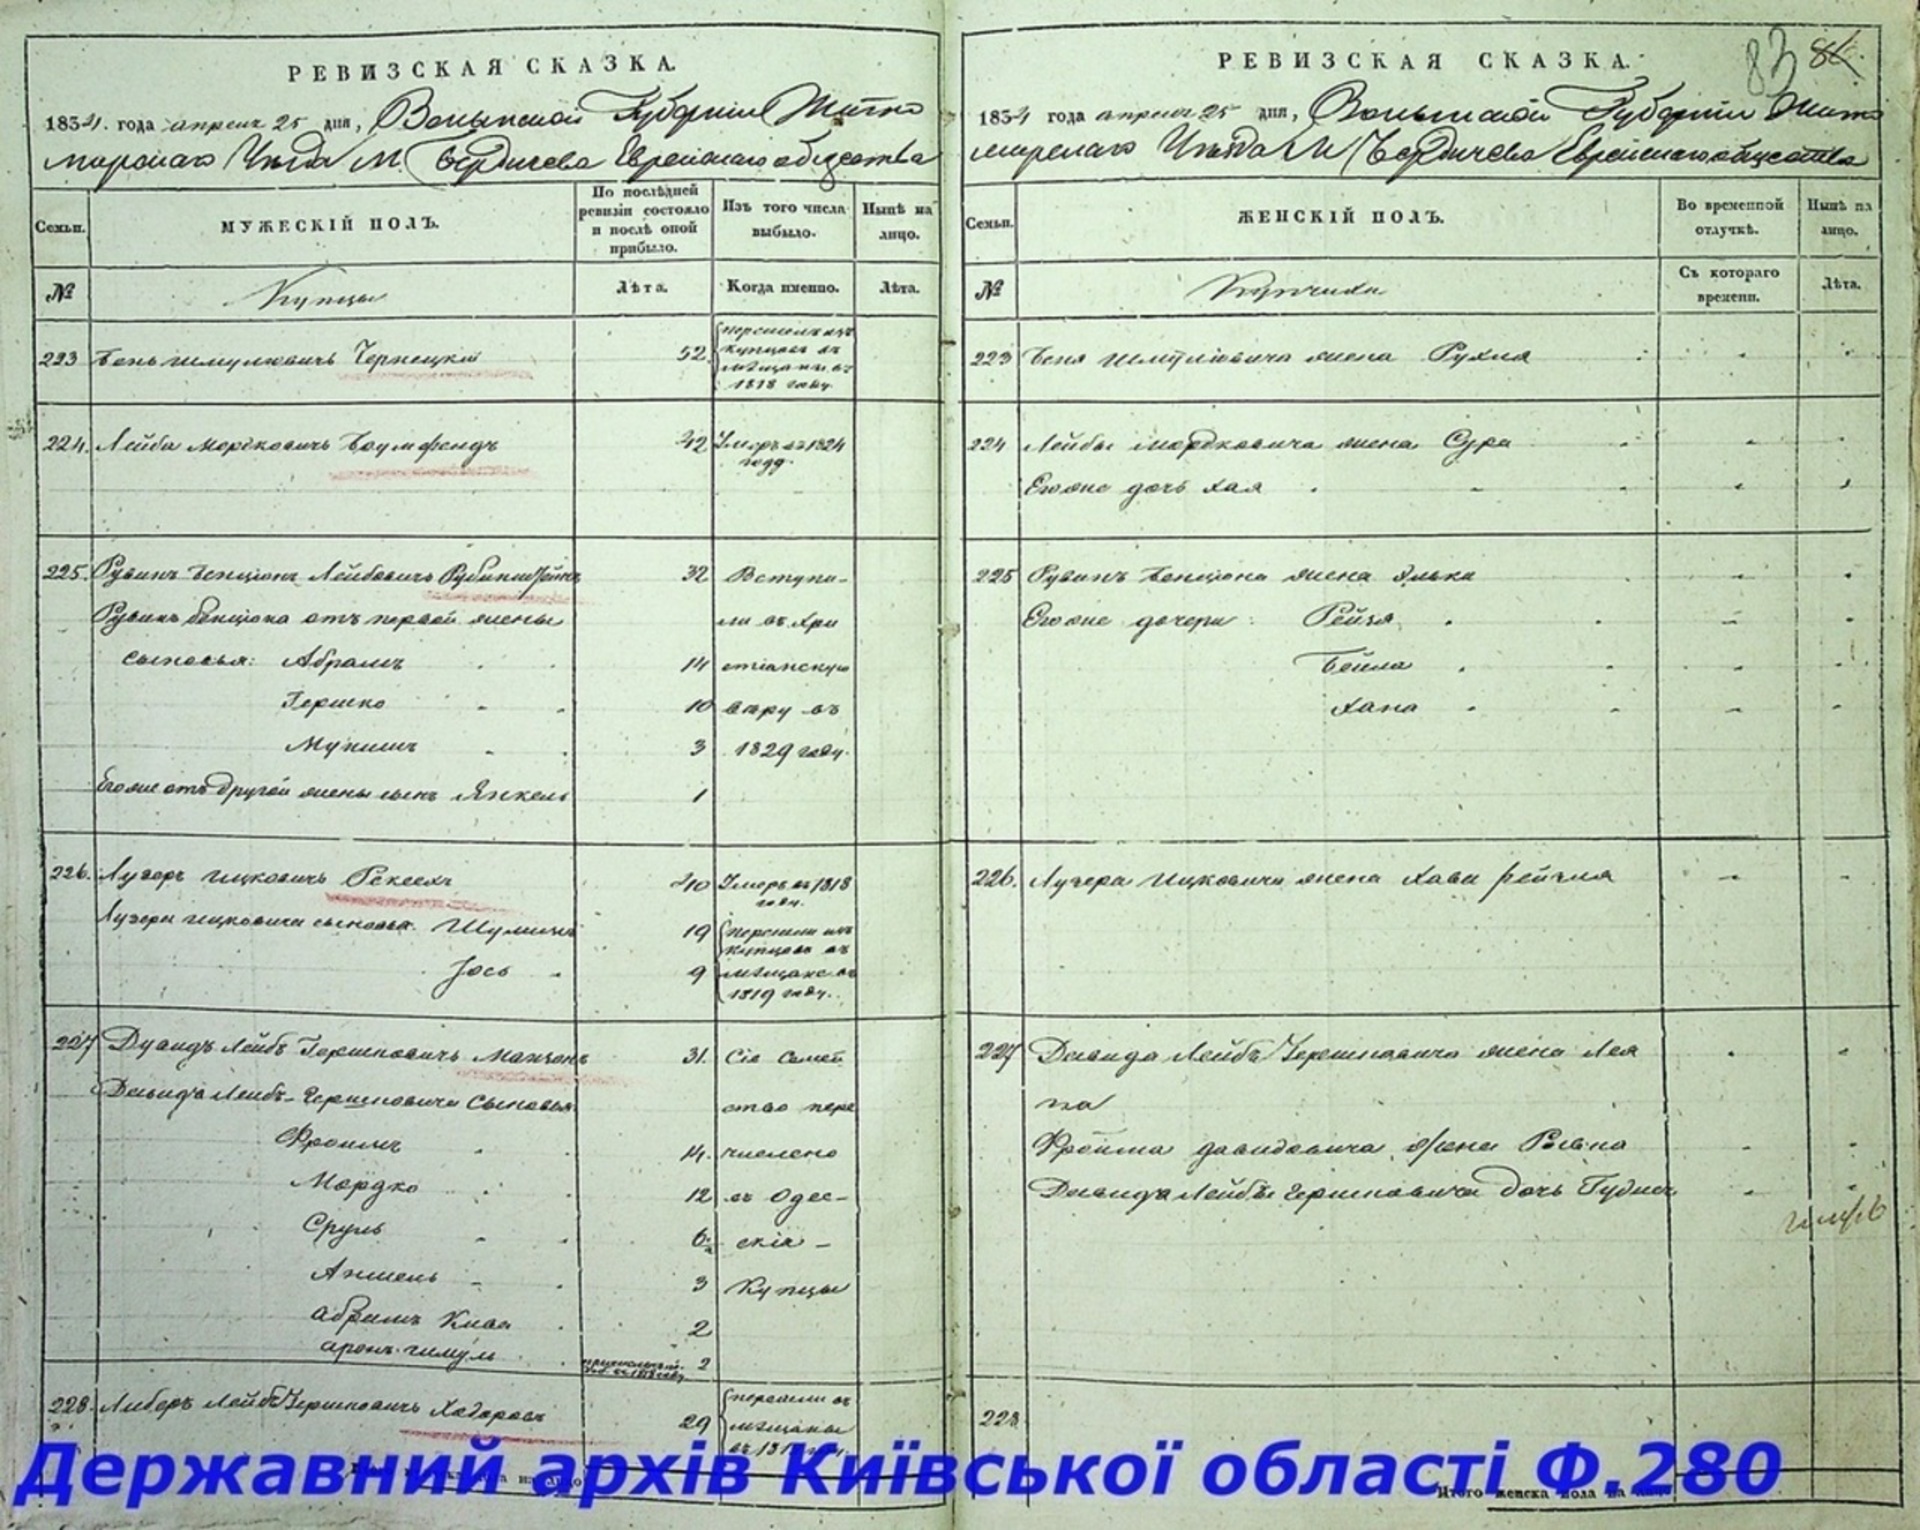 РЕВИЗСКАЯ СКАЗКА.
1834. года апреля 25 дня, Волынской Губернии Жито
мирскаго Уезда М. Бердичева Еврейскаго общества
Семьи.
МУЖЕСКІЙ ПОЛЪ.
По послѣдней ревизіи состояло и послѣ оной прибыло.
Изъ того числа выбыло.
Нынѣ на лицо.
№
Купцы
Лѣта.
Когда именно.
Лѣта.
223 Бень Шмулювичъ Чернецкій 52 перешелъ изъ
купцовъ въ
мѣщаны въ
1818 году.
224. Лейба Мордковичъ Боумфельдъ 42 Умеръ въ 1824
году.
225. Рувинъ Бенціонъ Лейбовичъ Рубинштейнъ 32 Вступи-
Рувинъ Бенціона отъ первой жены ли въ Хри
сыновья: Абрамъ 14 стіанскую
Гершко 10 вѣру въ
Мунишъ 3 1829 году.
Егоже отъ другой жены сынъ Янкель 1
226. Лузеръ Ицковичъ 40 Умеръ въ 1818
году.
Лузера Ицковича сыновья Шулимъ 19 перешли изъ
купцовъ въ
Іось 9 мѣщане въ
1819 году.
227 Дуандъ Лейбъ Гершковичъ 31. Сіе Семей
Давида Лейбъ-Гершковича Сыновья ство пере
Фроимъ 14. числено
Мордко 12 въ Одес-
Сруль 6 скія -
Аншель 3 Купцы
Абрамъ Кива 2
аронъ шмуль 2
228. Либеръ Лейбъ Гершковичъ 29 перешли въ
мѣщаны
РЕВИЗСКАЯ СКАЗКА.
83 84
1834 года апреля 25 дня, Волынской Губернии Жито
мирскаго Уезда М Бердичева Еврейскаго общества
Семьи.
ЖЕНСКІЙ ПОЛЪ.
Во временной отлучкѣ.
Нынѣ на лицо.
№
Купчихи
Съ котораго времени.
Лѣта.
223 Беня Шмулювича жена Рухля
224 Лейбы Мордковича жена Сура
Егоже дочь Хая
225 Рувинъ Бенціона жена
Егоже дочери: Рейзя
Бейла
Хана
226. Лузера Ицковича жена Хава Рейзля
227 Давида Лейбъ Гершковича жена Лея
Фроима давидовича жена Ривка
Давида Лейбы Гершковича дочь
228.
Итого женска пола на лицо
Державний архів Київської області Ф.280